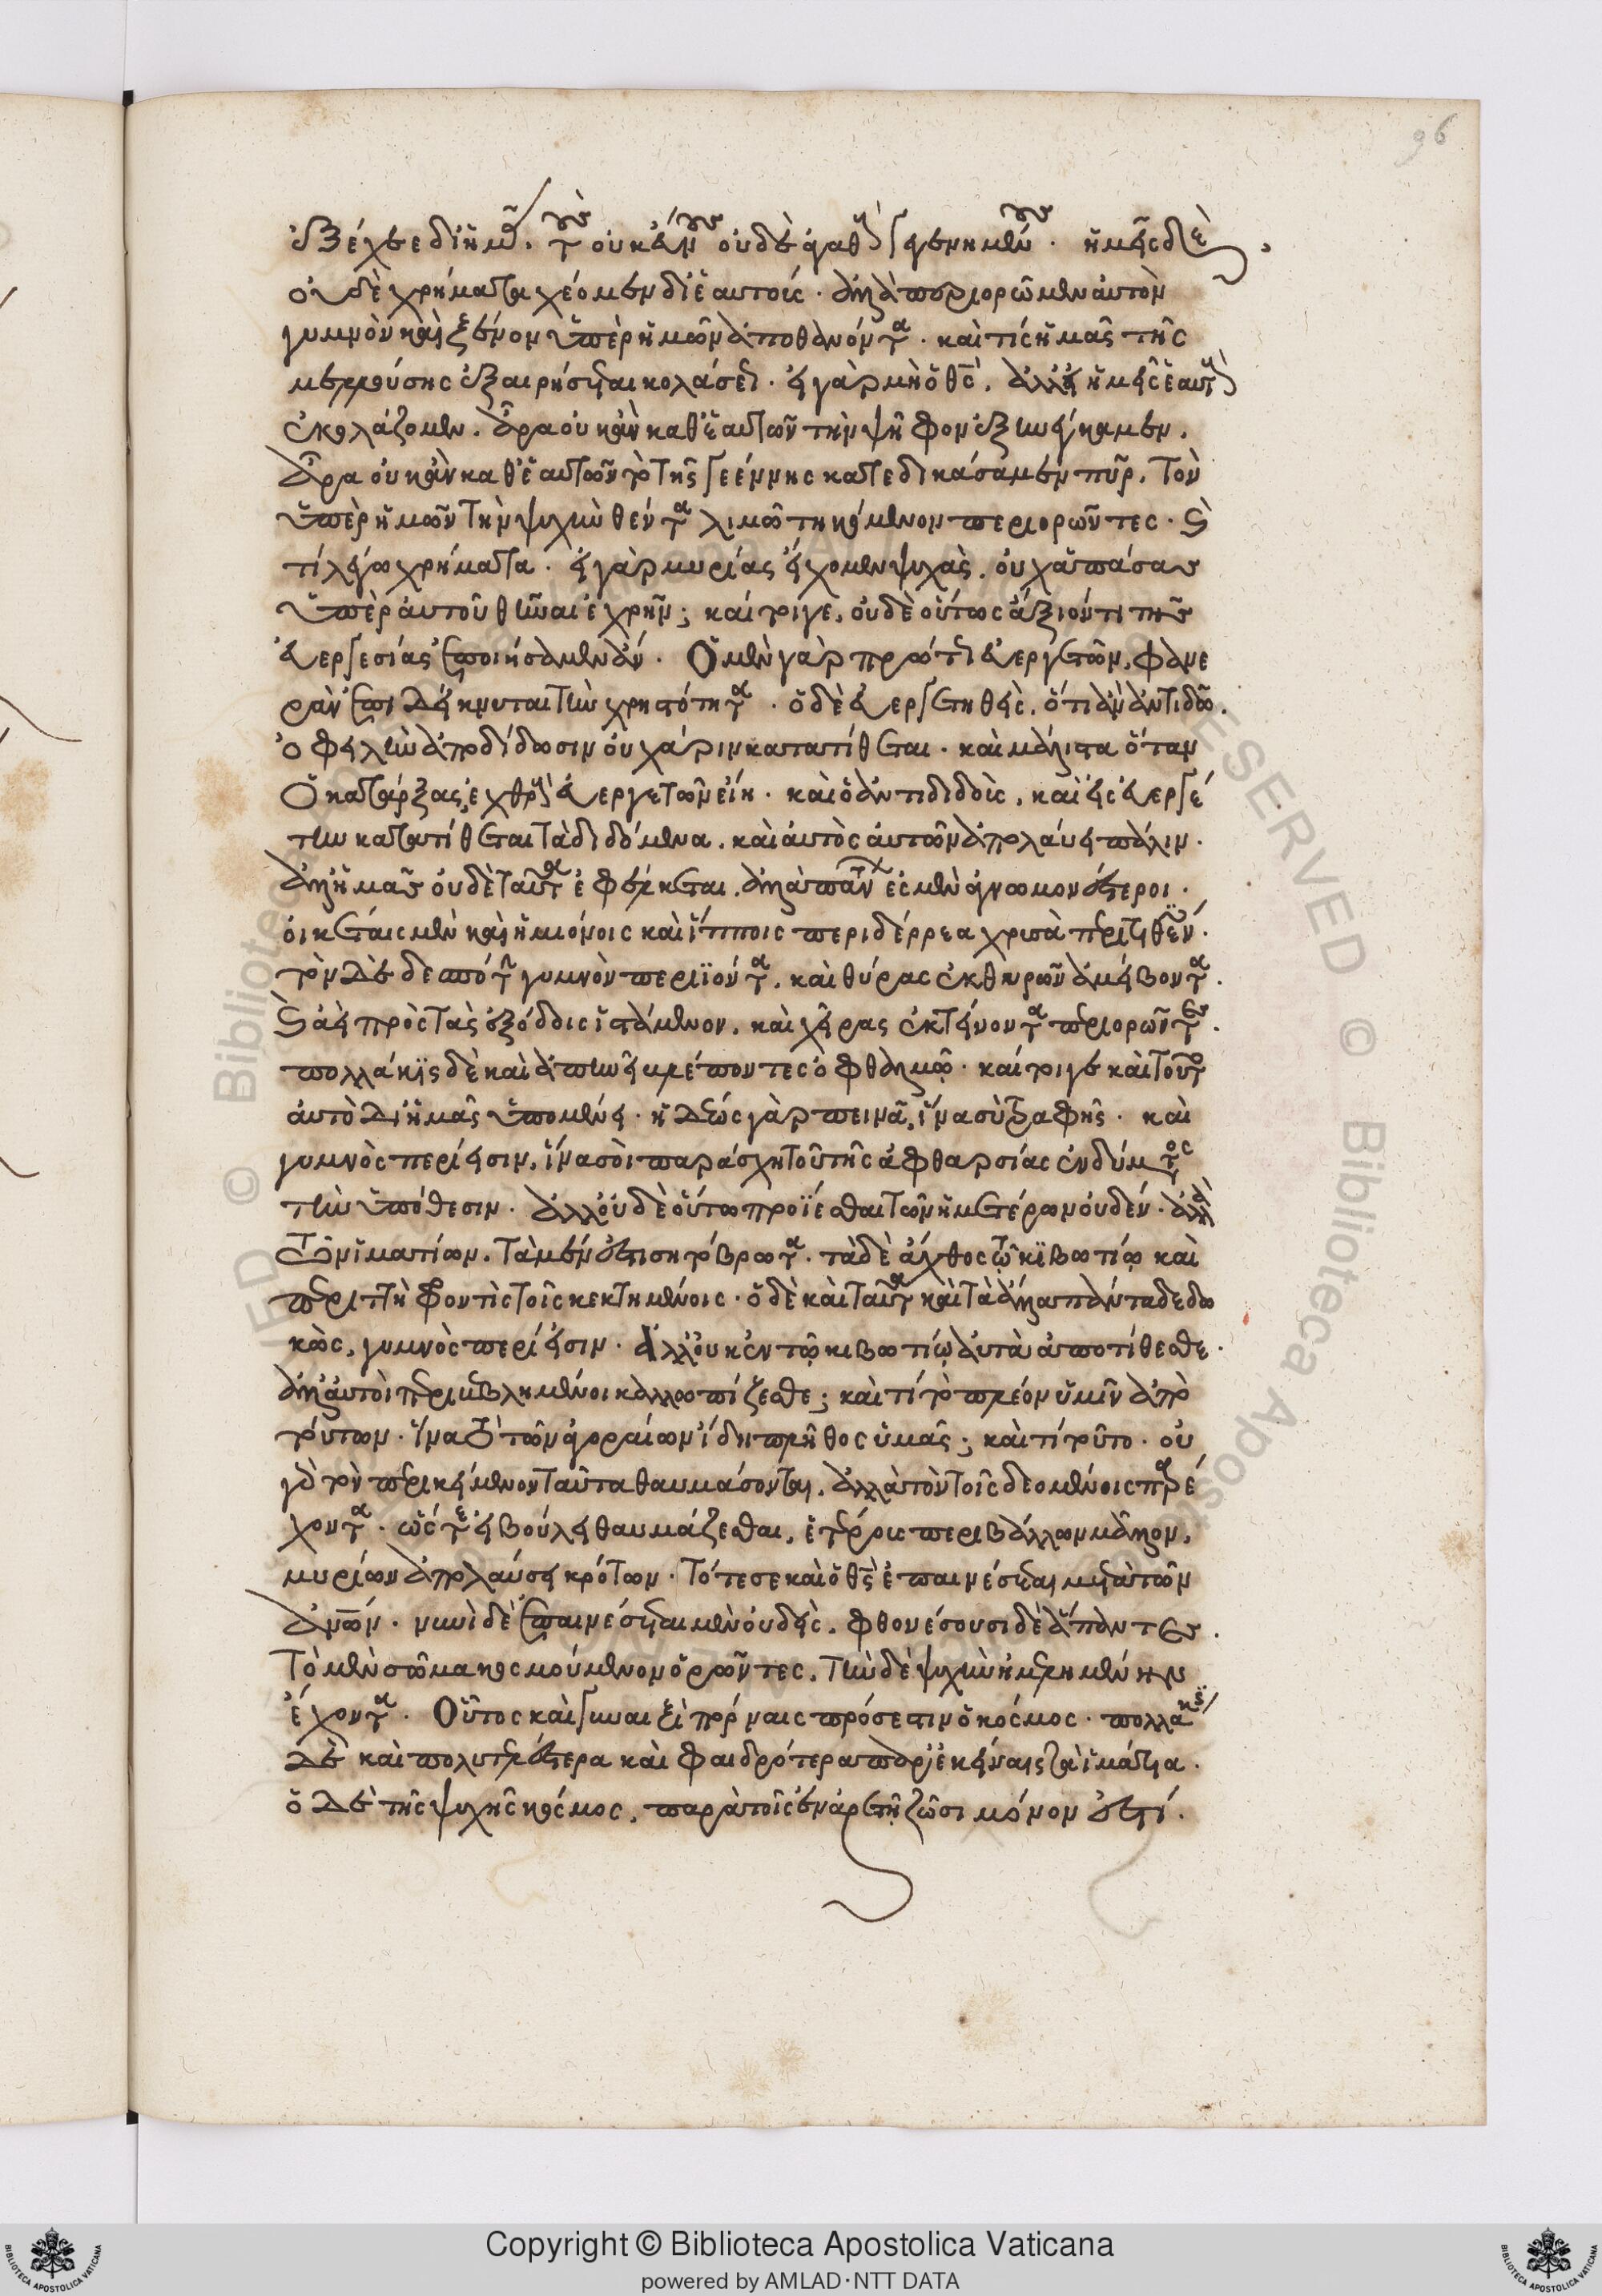 96
ἐξέχεε δι' ἡμᾶς τοὺς οὐκ εὐγνώμονας οὐδὲ ἀγαθοὺς γενομένους. ἡμεῖς δὲ
οὐδὲ χρήματα χέομεν δι' ἑαυτοὺς. ἀλλὰ περιορῶμεν αὐτὸν
γυμνὸν καὶ ξένον ὑπὲρ ἡμῶν ἀποθανόντα. καὶ τίς ἡμᾶς τῆς
μελλούσης ἐξαιρήσεται κολάσεως. εἰ γὰρ μὴ ὁ θς, ἀλλ' ἡμεῖς ἑαυτοὺς
ἐκολάζομεν. ἆρα οὐκ ἂν καθ' ἑαυτῶν τὴν ψῆφον ἐξηνέγκαμεν.
ἆρα οὐκ ἂν καθ' ἑαυτῶν τὸ τῆς γεέννης κατεδικάσαμεν πῦρ. τὸν
ὑπὲρ ἡμῶν τὴν ψυχὴν θέντα λιμῶ τηκόμενον περιορῶντες. καὶ
τί λέγω χρήματα. εἰ γὰρ μυρίας εἴχομεν ψυχὰς. οὐχ ἁπάσας
ὑπὲρ αὐτοῦ θεῖναι ἐχρῆν; καίτοιγε, οὐδὲ οὕτως ἄξιόν τι τῆς
εὐεργεσίας ἐποιήσαμεν ἄν. Ὁ μὲν γὰρ πρότερος εὐεργετῶν, φανε
ρὰν ἐπιδείκνυται τὴν χρηστότητα. ὁ δὲ εὐεργετηθεὶς. ὅτι ἂν ἀντιδῶ.
ὀφειλὴν ἀποδίδωσιν οὐ χάριν κατατίθεται. καὶ μάλιστα ὅταν
Ὁ κατάρξας, ἐχθροὺς εὐεργετῶν εἴη. καὶ ὁ ἀντιδιδοὺς, καὶ εἰς εὐεργέ
την κατατίθεται τὰ διδόμενα. καὶ αὐτὸς αὐτῶν ἀπολαύει πάλιν.
ἀλλ' ἡμᾶς οὐδὲ ταῦτα ἐφέλκεται. ἀλλὰ πάντων ἐσμὲν ἀγνωμονέστεροι.
οἰκέταις μὲν καὶ ἡμιόνοις καὶ ἵπποις περιδέρρεα χρυσᾶ περιτιθέντες.
τὸν δὲ δεσπότην γυμνὸν περιϊόντα. καὶ θύρας ἐκ θυρῶν ἀμείβοντα.
καὶ ἀεὶ πρὸς τὰς ἐξόδους ἱστάμενον. καὶ χεῖρας ἐκτείνοντα περιορῶντες.
πολλάκις δὲ καὶ ἀπηνεῖ βλέποντες ὀφθαλμῶ. καίτοιγε καὶ τοῦτο
αὐτὸ δι' ἡμᾶς ὑπομένει. ἡδέως γὰρ πεινᾶ, ἵνα σὺ τραφῆς. καὶ
γυμνὸς περίεισιν. ἵνα σοι παράσχη τοῦ τῆς ἀφθαρσίας ἐνδύματος
τὴν ὑπόθεσιν. ἀλλ' οὐδὲ οὕτω προΐεσθαι τῶν ἡμετέρων οὐδέν. ἀλλὰ
τῶν ἱματίων. τὰ μέν ἐστι σητόβρωτα. τὰ δὲ ἄχθος τῷ κιβωτίῳ καὶ
περιττὴ φροντὶς τοῖς κεκτημένοις. ὁ δὲ καὶ ταῦτα καὶ τὰ ἄλλα πάντα δεδω
κὼς, γυμνὸς περίεισιν. ἀλλ' οὐκ ἐν τῷ κιβωτίῳ αὐτὰ ἀποτίθεσθε.
ἀλλ' αὐτοὶ περιβεβλημένοι καλλωπίζεσθε; καὶ τί τὸ πλέον ὑμῖν ἀπὸ
τούτων. ἵνα ὁ τῶν ἀγοραίων ἴδη πλῆθος ὑμᾶς; καὶ τί τοῦτο. οὐ
γὰρ τὸν περικείμενον ταῦτα θαυμάσονται. ἀλλὰ τὸν τοῖς δεομένοις παρέ
χοντα. ὥστε εἰ βούλει θαυμάζεσθαι, ἑτέροις περιβάλλων μᾶλλον,
μυρίων ἀπολαύσει κρότων. τότε σε καὶ ὁ θς ἐπαινέσεται μετὰ τῶν
ἀνων. νυνὶ δὲ ἐπαινέσεται μὲν οὐδεὶς. φθονέσουσι δὲ ἅπαντες.
τὸ μὲν σῶμα κοσμούμενον ὁρῶντες, τὴν δὲ ψυχὴν ἠμελημένην
ἔχοντα. Οὗτος καὶ γυναιξὶ πόρναις πρόσεστιν ὁ κόσμος. πολλάκις
δὲ καὶ πολυτελέστερα καὶ φαιδρότερα παρ' ἐκείναις τὰ ἱμάτια.
ὁ δὲ τῆς ψυχῆς κόσμος, παρὰ τοῖς ἐν ἀρετῆ ζῶσι μόνον ἐστί.
Copyright © Biblioteca Apostolica Vaticana
powered by AMLAD·NTT DATA